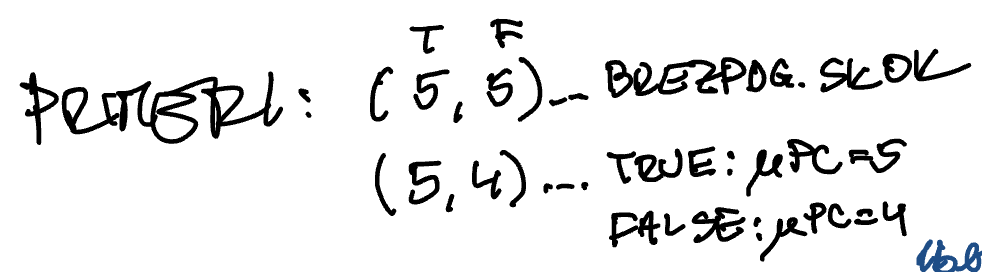 T F
PRIMERI: (5, 5)... BREZPOG. SKOK
(5, 4)... TRUE: μPC=5
FALSE: μPC=4